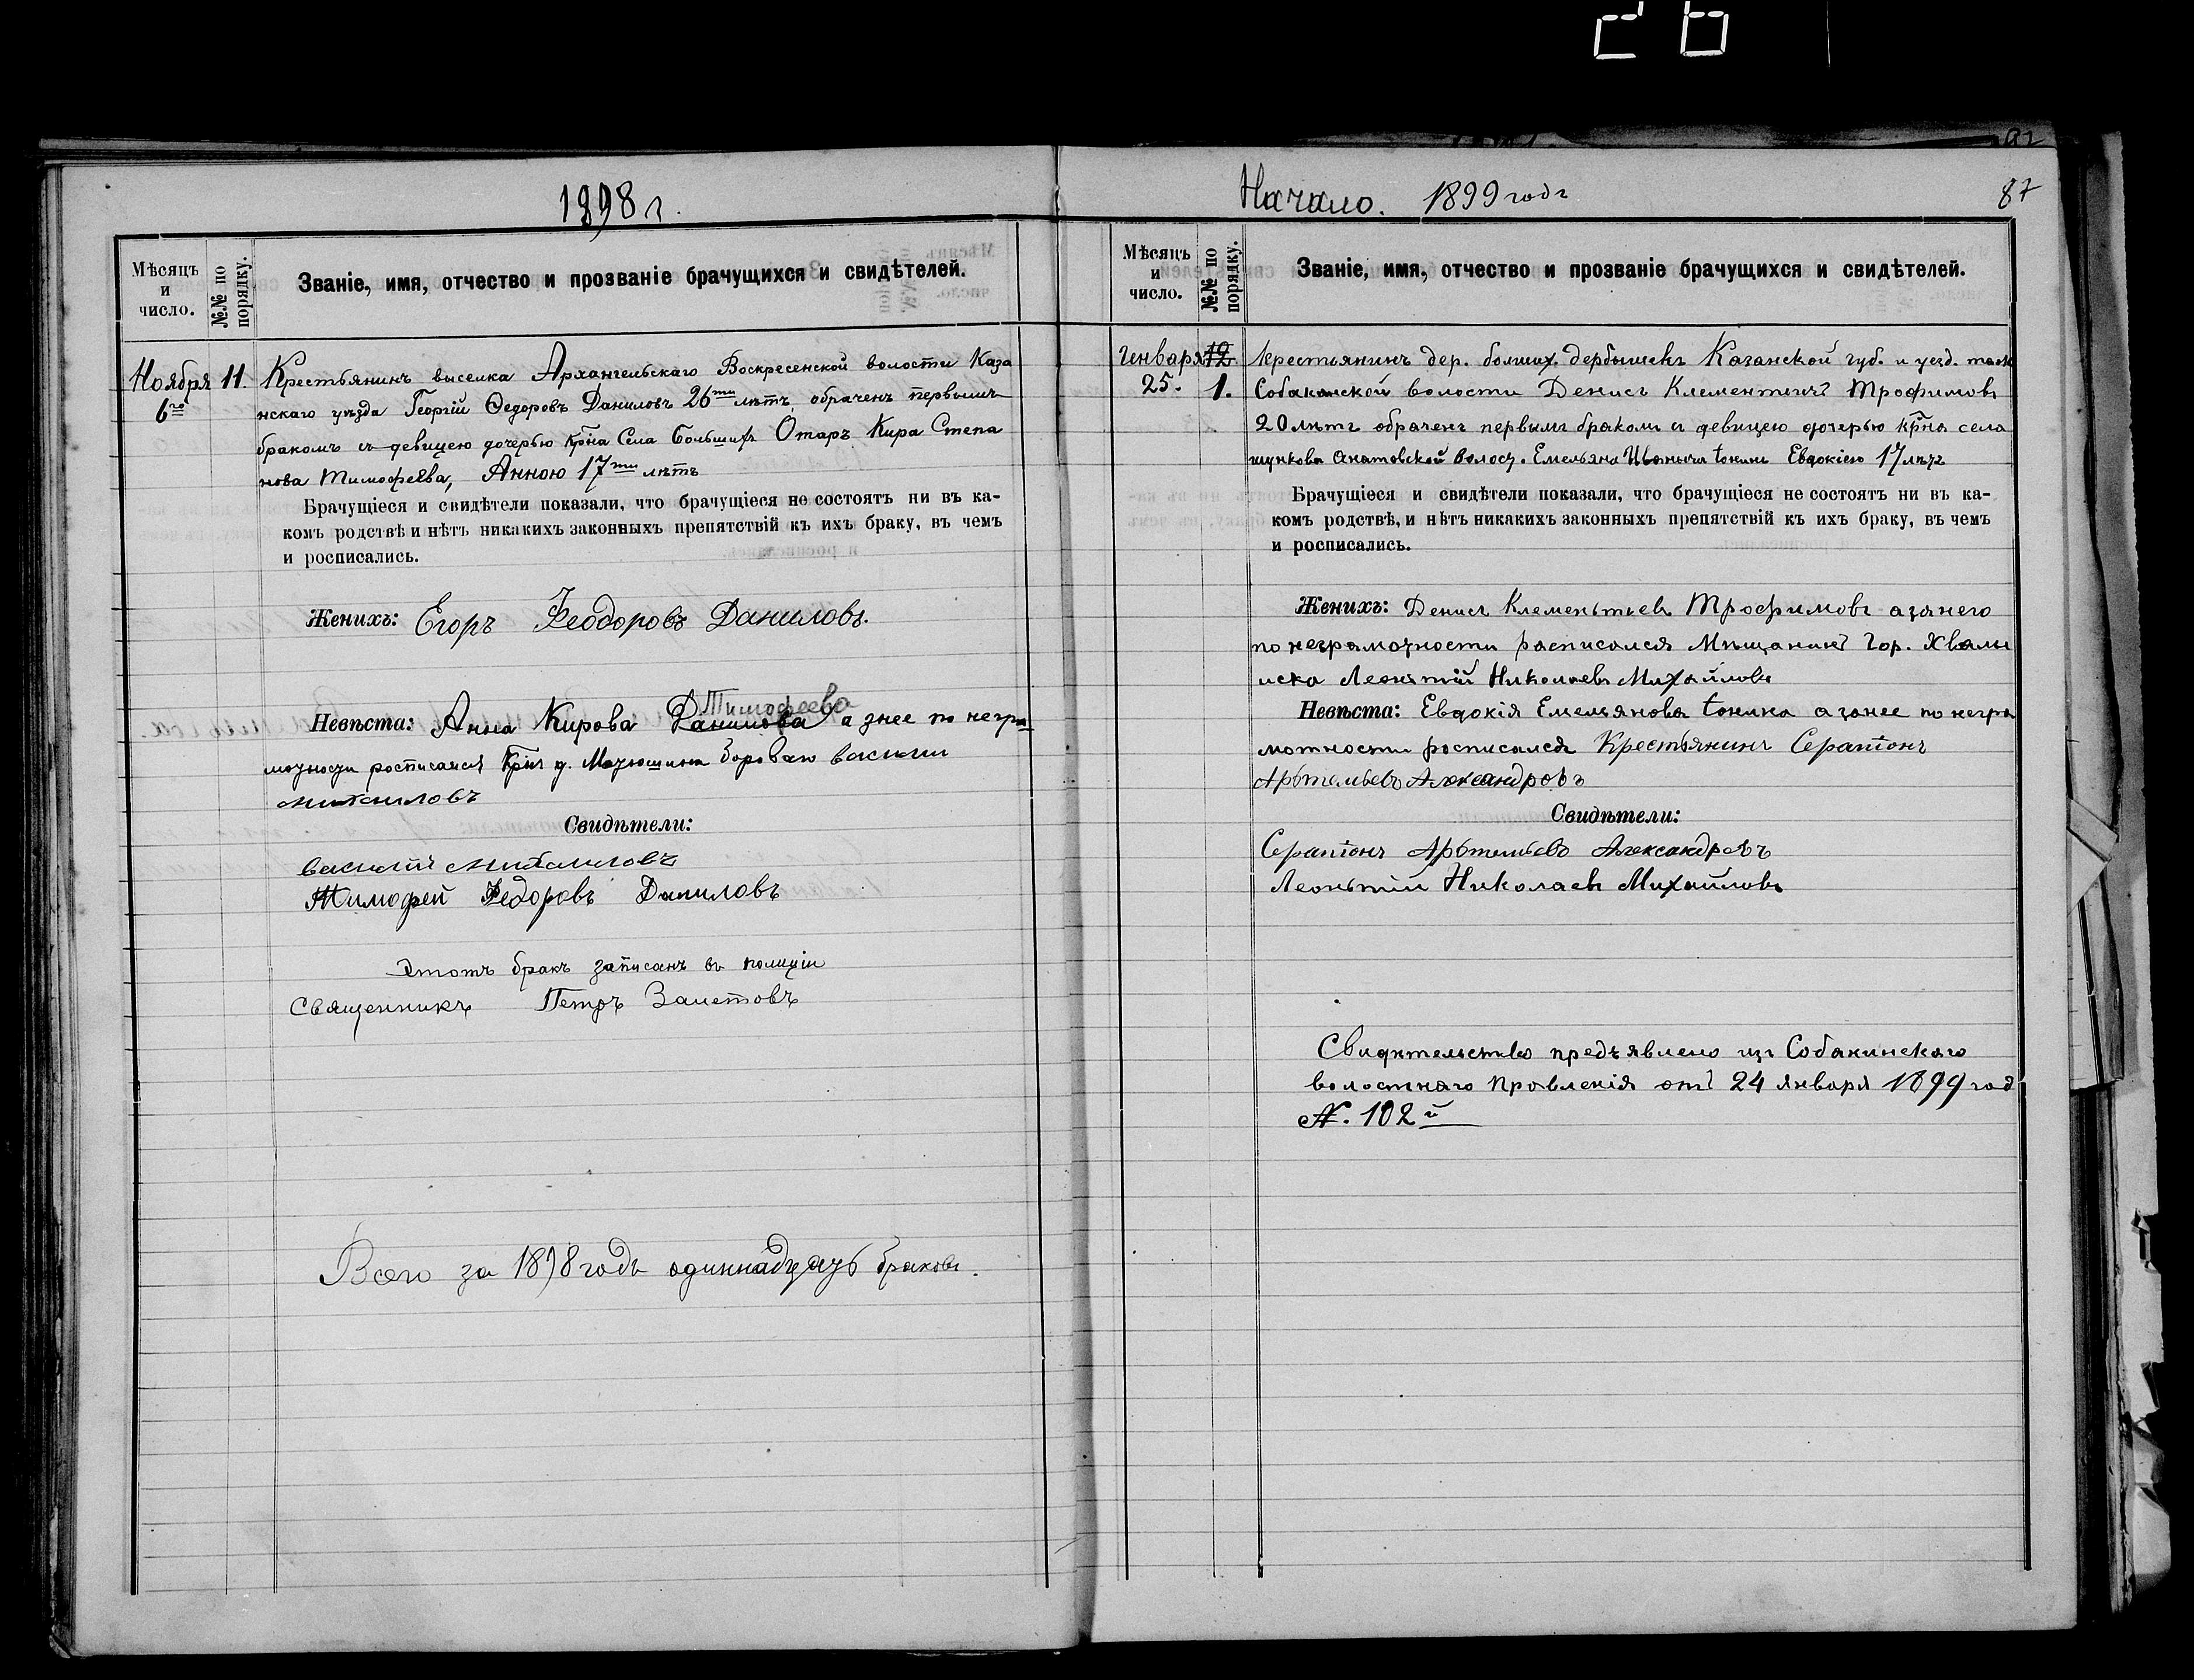 26
1898 г.
Мѣсяцъ и число.
№№ по порядку.
Званіе, имя, отчество и прозваніе брачущихся и свидѣтелей.
Ноября 11. Крестьянинъ выселка Архангельскаго Воскресенской волости Каза
6го нскаго уѣзда Георгій Ѳедоровъ Даниловъ 26ти лѣтъ, обраченъ первымъ
бракомъ съ девицею дочерью крⷭ҇на Села Большихъ Отаръ Кира Степа
нова Тимофеева, Анною 17ти лѣтъ
Брачущіеся и свидѣтели показали, что брачущіеся не состоятъ ни въ ка-
комъ родствѣ и нѣтъ никакихъ законныхъ препятствій къ ихъ браку, въ чемъ
и росписались.
Женихъ: Егоръ Феодоровъ Даниловъ.
Тимофеева
Невѣста: Анна Кирова Данилова а знее по негра
мотности росписался д. Матюшина василий
михаиловъ
Свидѣтели:
василий михаиловъ
Тимофей Федоровъ Даниловъ
Этотъ бракъ записанъ въ полиціи
Священникъ Петръ Заметовъ
Всего за 1898 годъ одиннадцать браковъ.
Начало. 1899 года
87
Мѣсяцъ и число.
№№ по порядку.
Званіе, имя, отчество и прозваніе брачущихся и свидѣтелей.
Генваря 12 Крестьянинъ дер. большх. дербышекъ Казанской губ. и уезд.
25. 1. Собакинской волости Денисъ Клементичъ Трофимовъ
20 лѣтъ обраченъ первымъ бракомъ с девицею дочерью села
шункова волост. Емельяна Тонина Евдокіею 17 лѣтъ
Брачущіеся и свидѣтели показали, что брачущіеся не состоятъ ни въ ка-
комъ родствѣ, и нѣтъ никакихъ законныхъ препятствій къ ихъ браку, въ чемъ
и росписались.
Женихъ: Денисъ Клеменьтьевъ Трофимовъ а занего
по неграмотности расписался Мѣщанинъ Гор. Хвалы
нска Леонтій Николаевъ Михайловъ
Невѣста: Евдокія Емельянова тонина а занее по негра
мотности росписался Крестьянинъ Серапіонъ
Арьтемьевъ Александровъ
Свидѣтели:
Серапіонъ Арьтемьевъ Александровъ
Леонътій Николаевъ Михайловъ
Свидетельство предъявлено изъ Собакинскаго
волостнаго Правленія отъ 24 января 1899 год
№. 102й